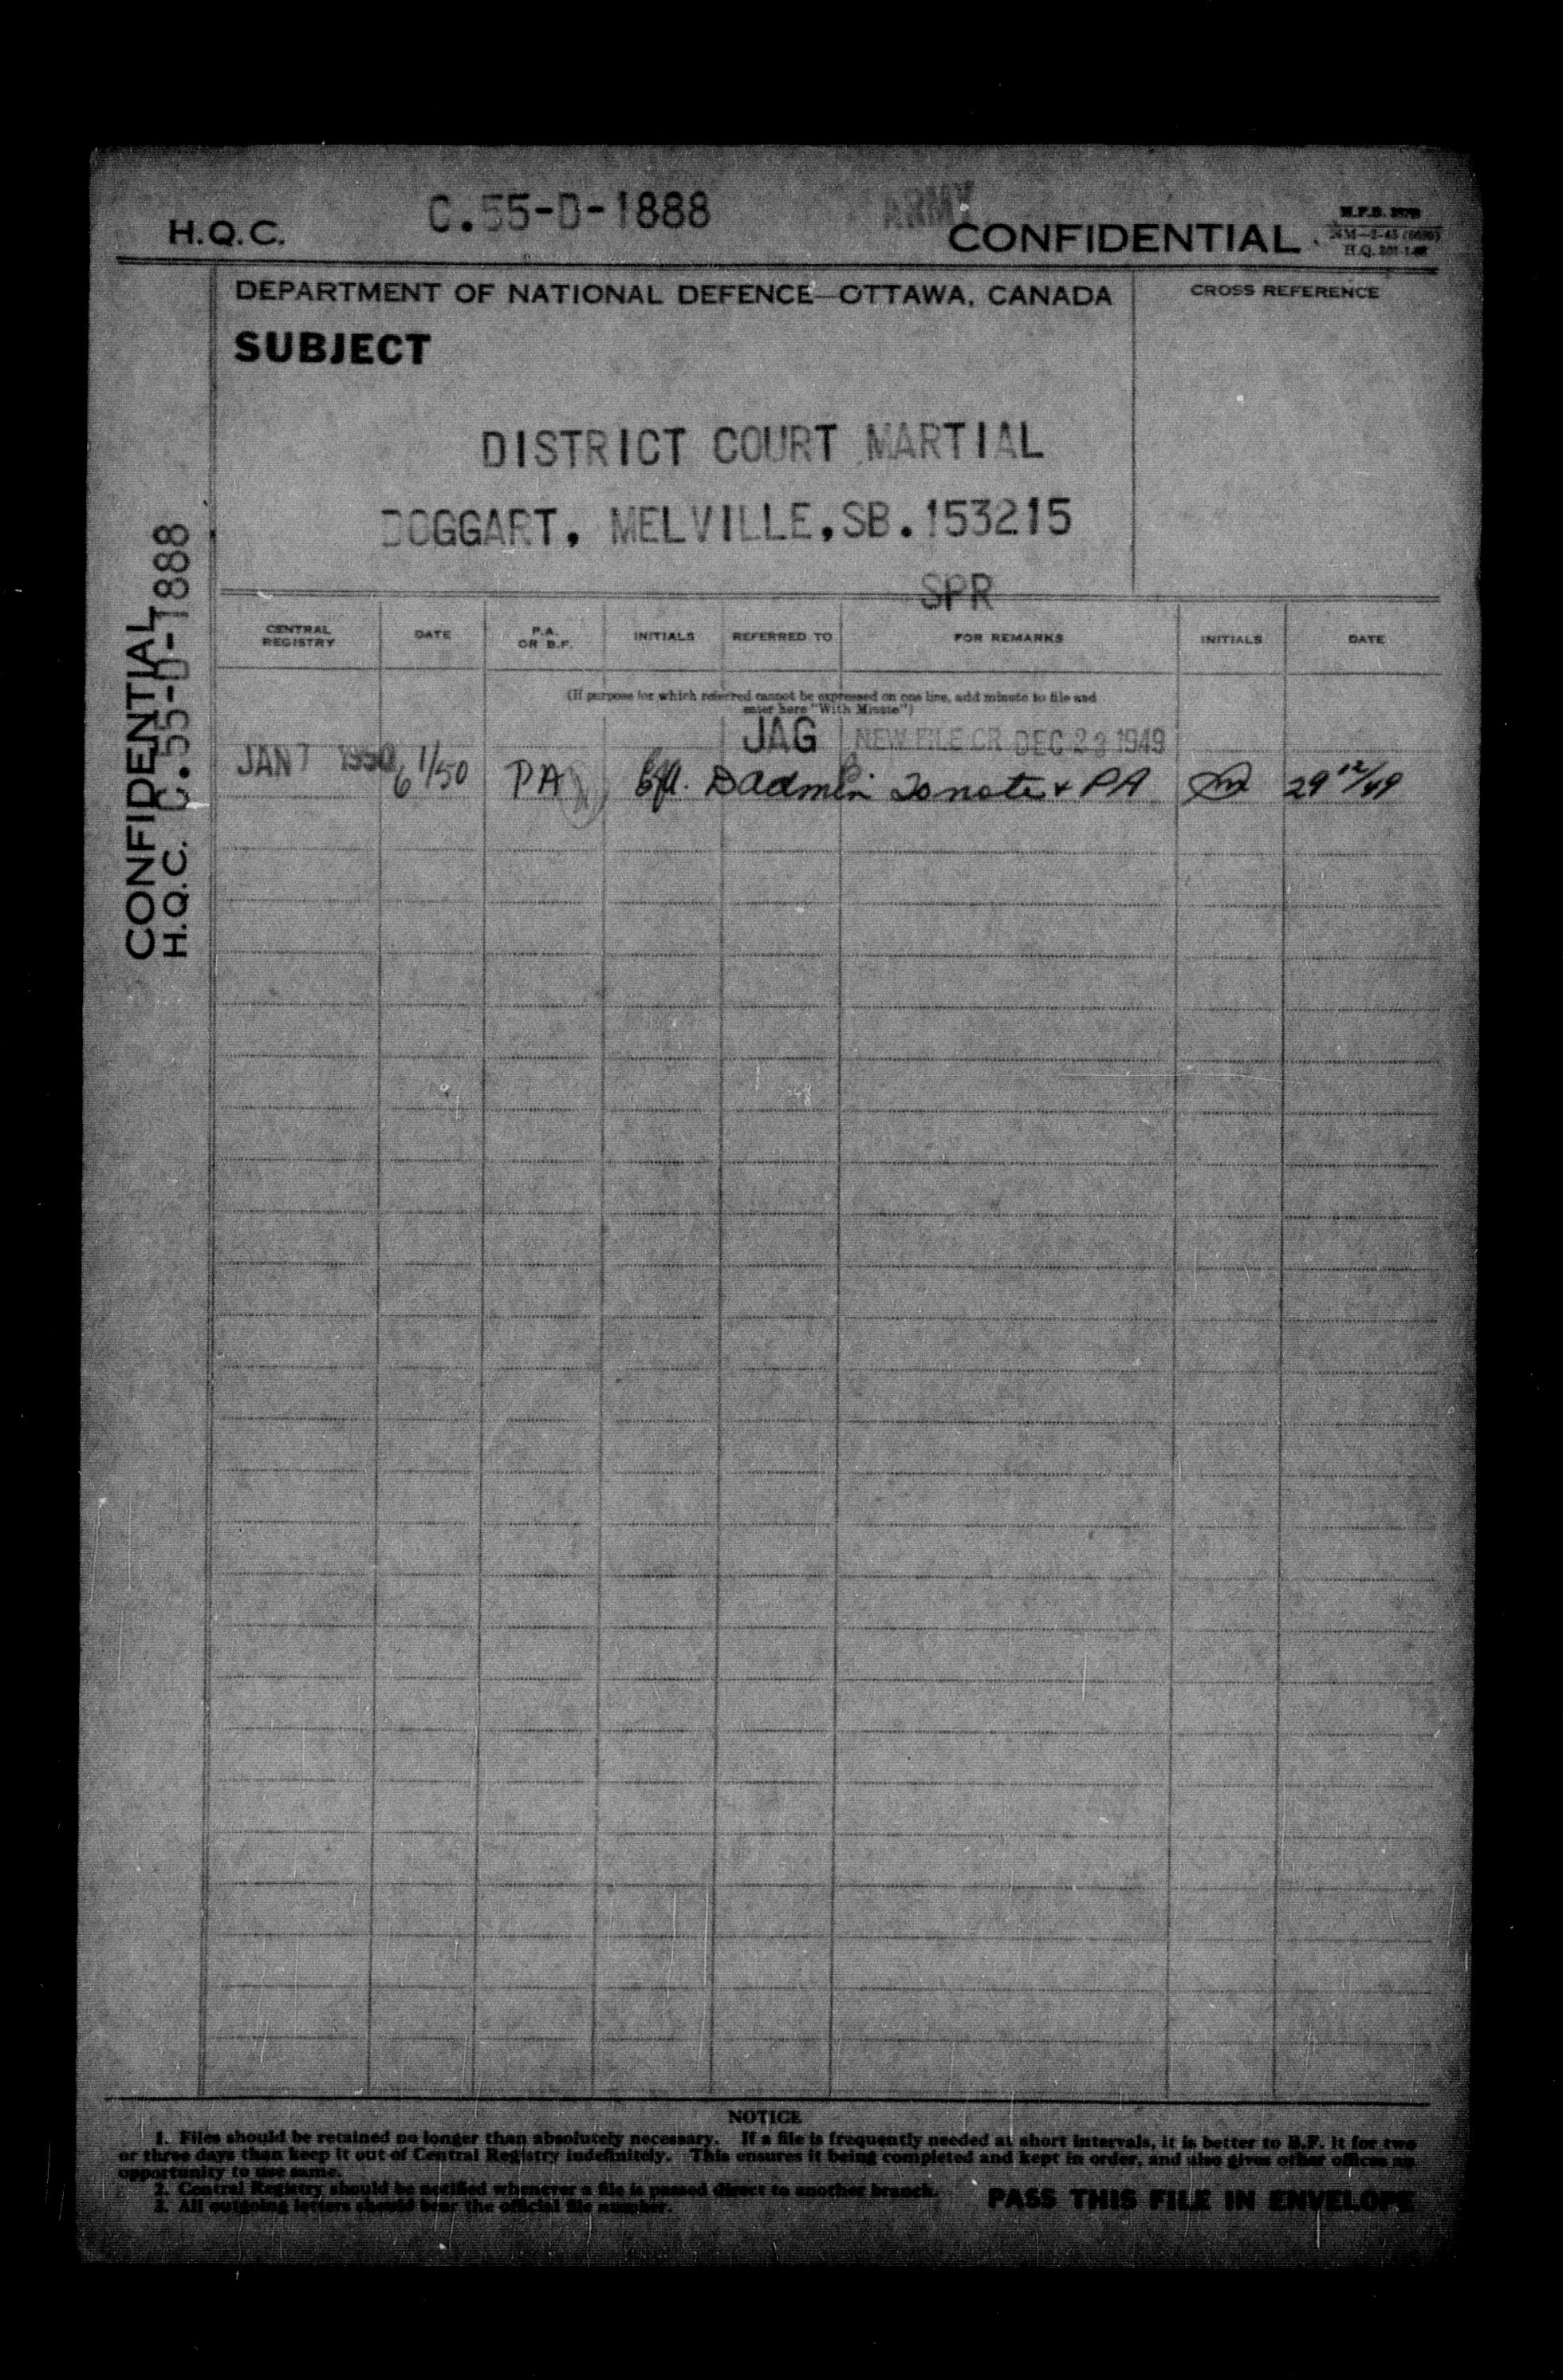 C.55-D-1888
ARMY
H.Q.C.
CONFIDENTIAL
DEPARTMENT OF NATIONAL DEFENCE—OTTAWA, CANADA
CROSS REFERENCE
SUBJECT
DISTRICT COURT MARTIAL
DOGGART, MELVILLE, SB.153215
SPR
CENTRAL REGISTRY DATE P.A. OR B.F. INITIALS REFERRED TO FOR REMARKS INITIALS DATE
(If purpose for which referred cannot be expressed on one line, add minute to file and
enter here "With Minute")
JAG NEW FILE CR DEC 23 1949
JAN 7 1950 6 1/50 PA D Admin To note & PA 29 12/49
CONFIDENTIAL
H.Q.C. C.55-D-1888
NOTICE
1. Files should be retained no longer than absolutely necessary. If a file is frequently needed at short intervals, it is better to B.F. it for two
or three days than keep it out of Central Registry indefinitely. This ensures it being completed and kept in order, and also gives other offices an
opportunity to use same.
2. Central Registry should be notified whenever a file is passed direct to another branch.
3. All outgoing letters should bear the official file number.
PASS THIS FILE IN ENVELOPE